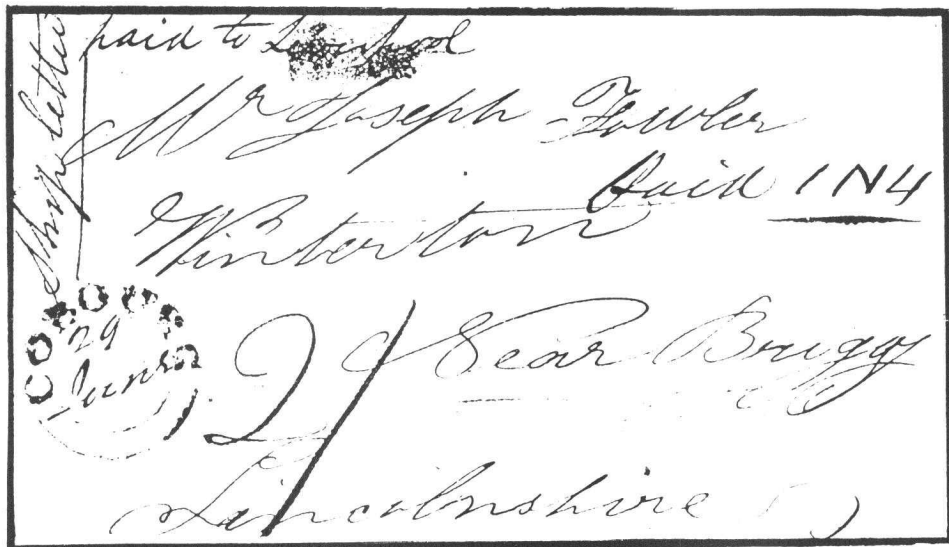 Ship letter
paid to Liverpool
Mr Joseph Fowler
Paid 1N4
Winterton
COBOURG
29
2/
Near Brigg
Lincolnshire